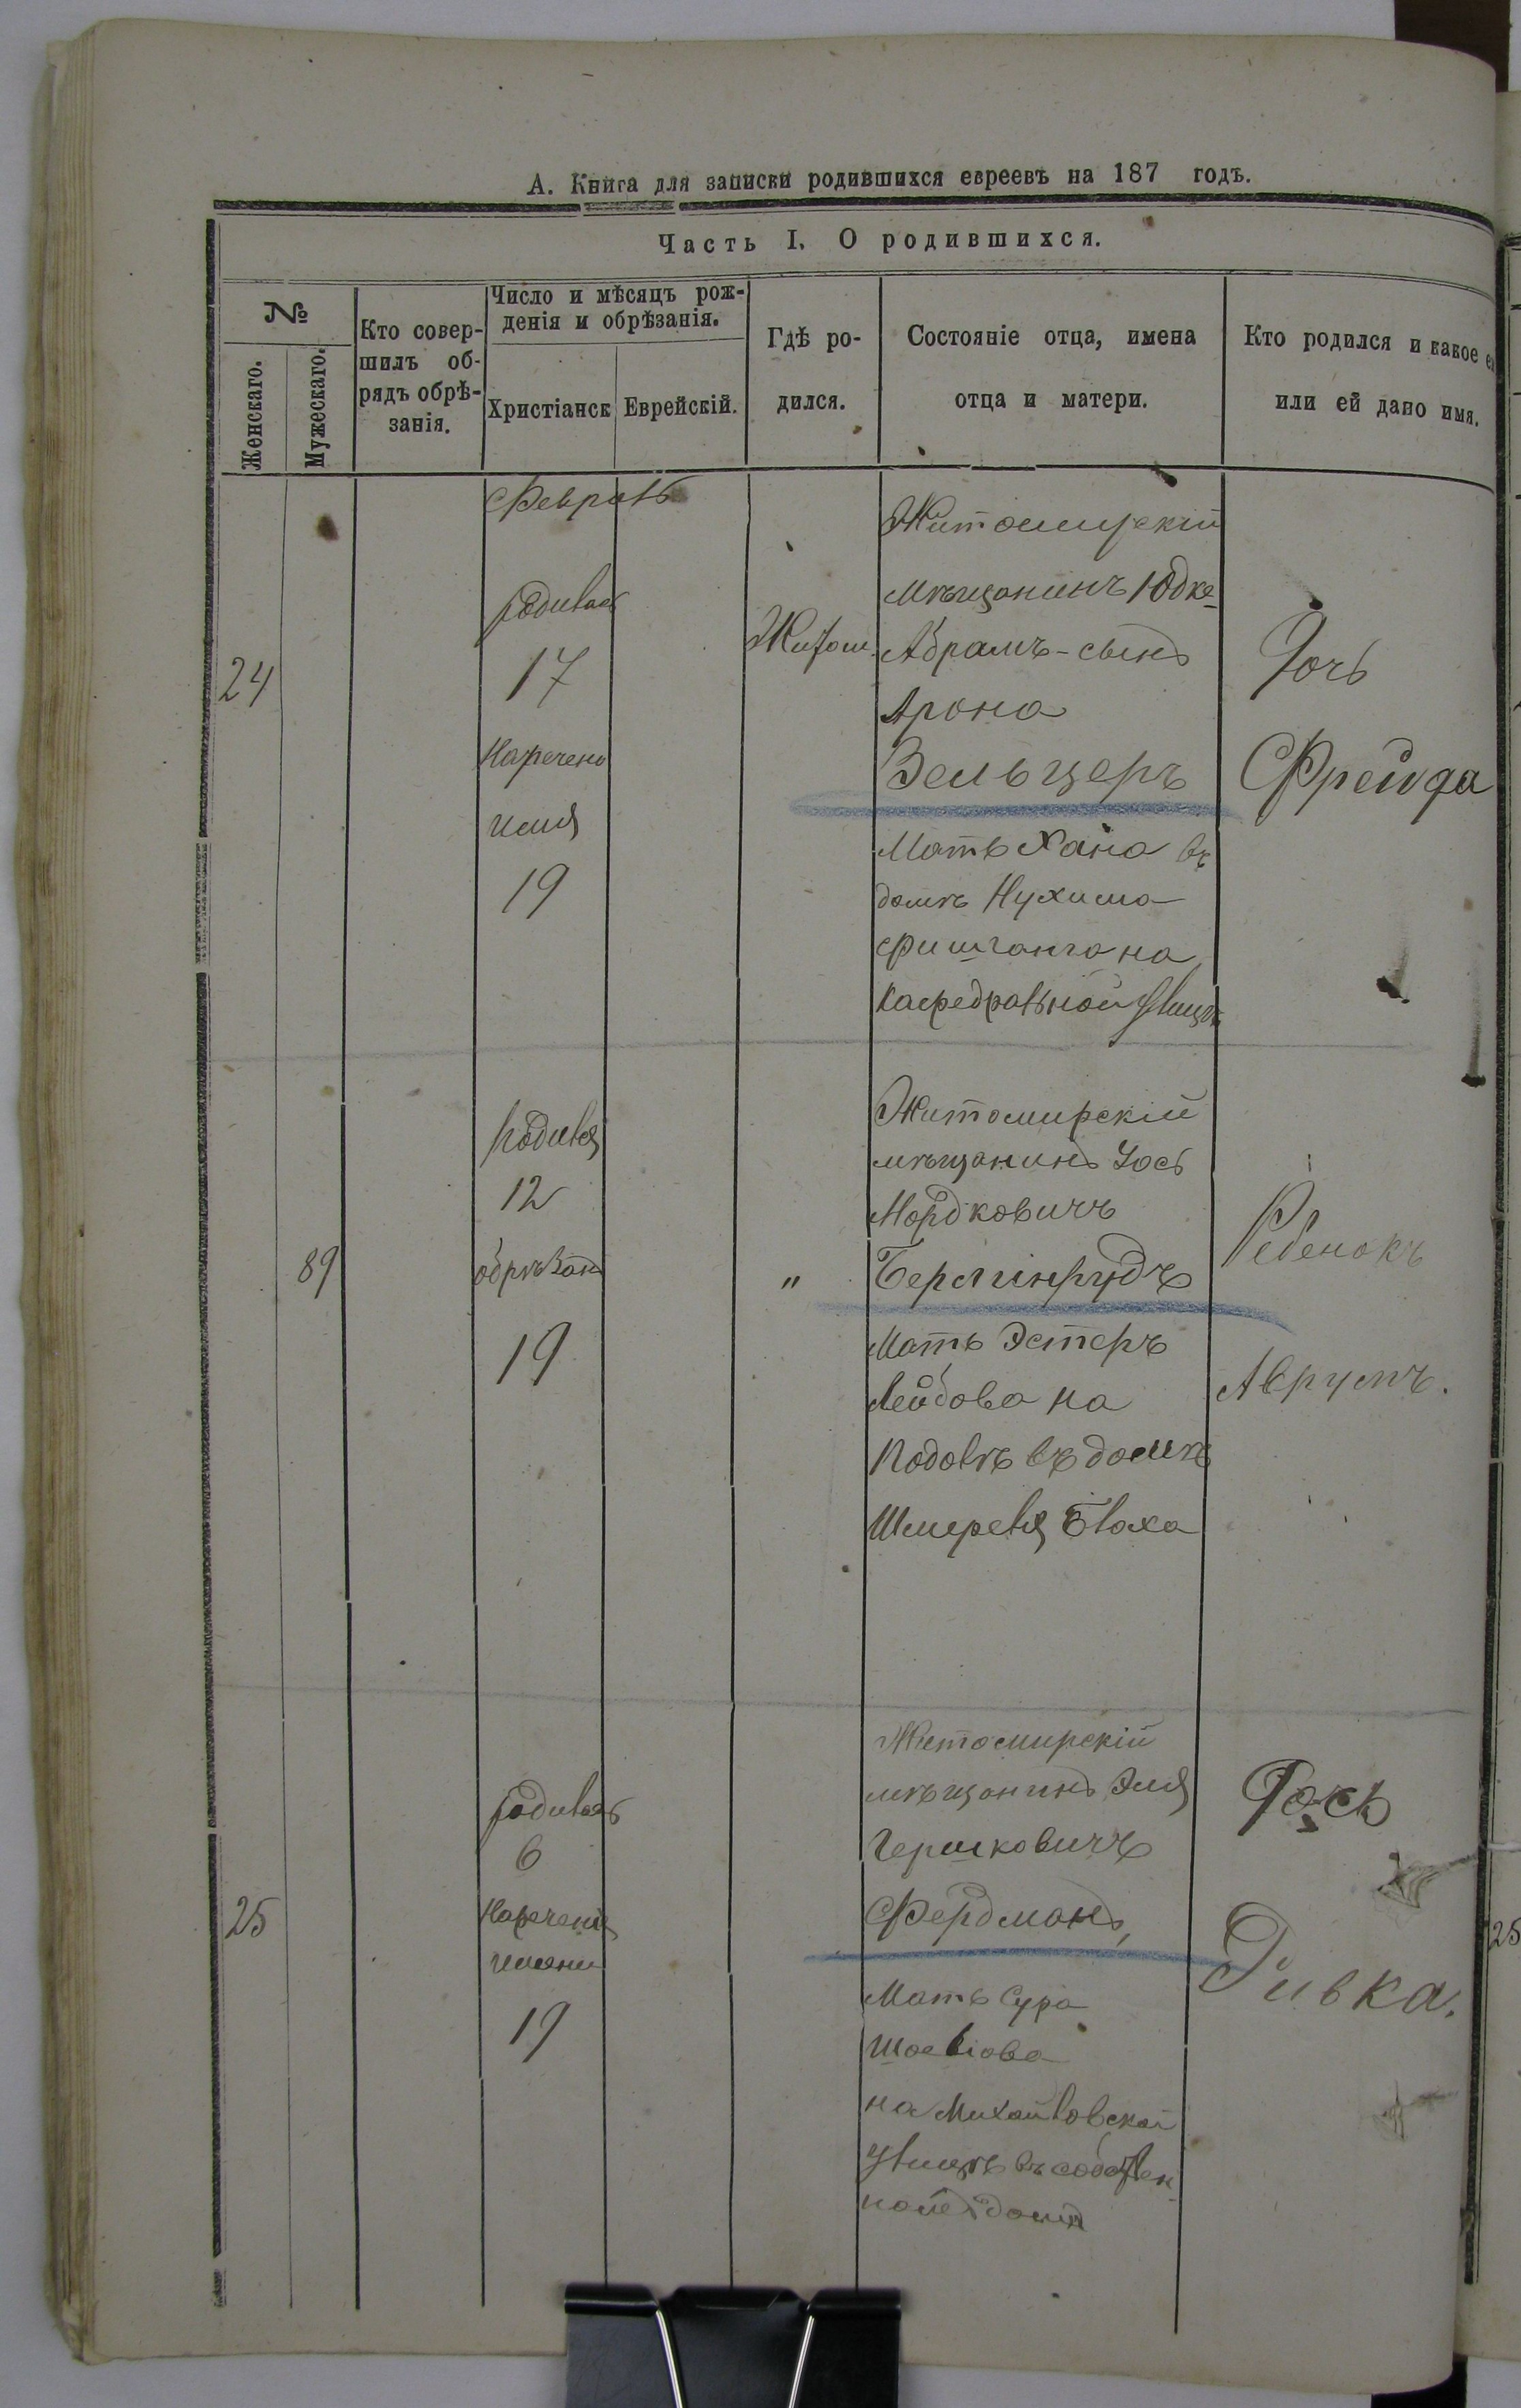 А. Книга для записки родившихся евреевъ на 187 годъ.
Часть I. О родившихся.
№
Женскаго.
Мужескаго.
Кто совер-
шилъ об-
рядъ обрѣ-
занія.
Число и мѣсяцъ рож-
денія и обрѣзанія.
Христіанск
Еврейскій.
Гдѣ ро-
дился.
Состояніе отца, имена
отца и матери.
Кто родился и какое е
или ей дано имя.
Февраль
24
родилась
17
Наречено
имя
19
Житом.
Житомирскій
мѣщанинъ Юдке-
Абрамъ-сынъ
Арона
Зельцеръ
Мать Хана въ
домѣ Нухима
на
Кафедральной улицѣ
Дочь
Фрейда
89
родился
12
обрѣзанъ
19
"
Житомирскій
мѣщанинъ Іось
Мордковичъ
Берлинрудъ
Мать Эстеръ
Лейбова на
Подолѣ въ домѣ
Шмереля Блоха
Ребенокъ
Аврумъ.
25
родилась
6
Наречение
имени
19
Житомирскій
мѣщанинъ Эля
Гершковичъ
Фердманъ,
Мать Сура
на Михайловской
улицѣ въ собствен-
номъ домѣ
Дочь
Ривка.
25